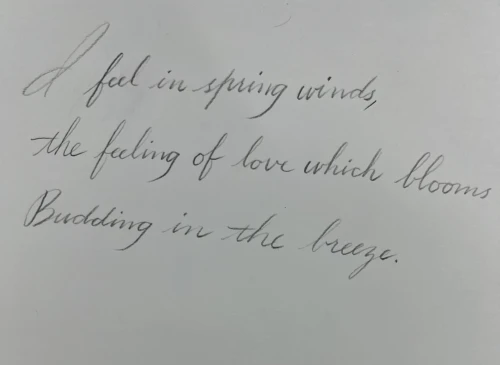 I feel in spring winds,
the feeling of love which blooms
Budding in the breeze.